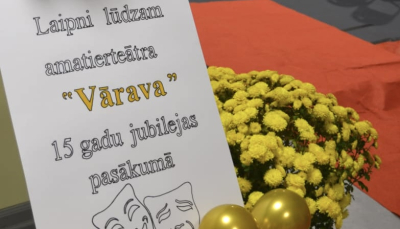 Laipni lūdzam
amatierteātra
"Vārava"
15 gadu jubilejas
pasākumā